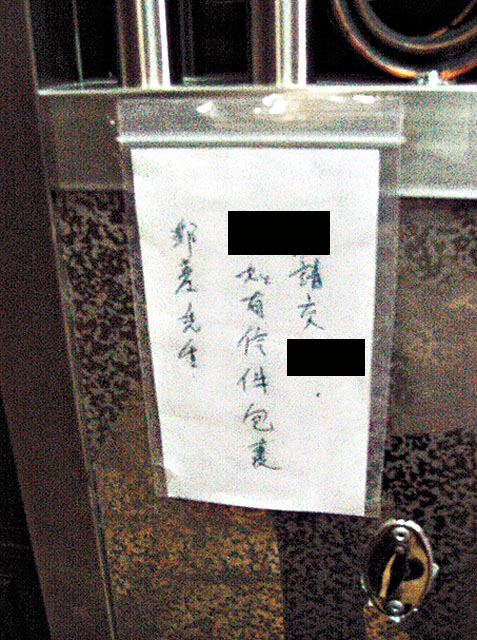 郵差先生
如有信件包裹
請交